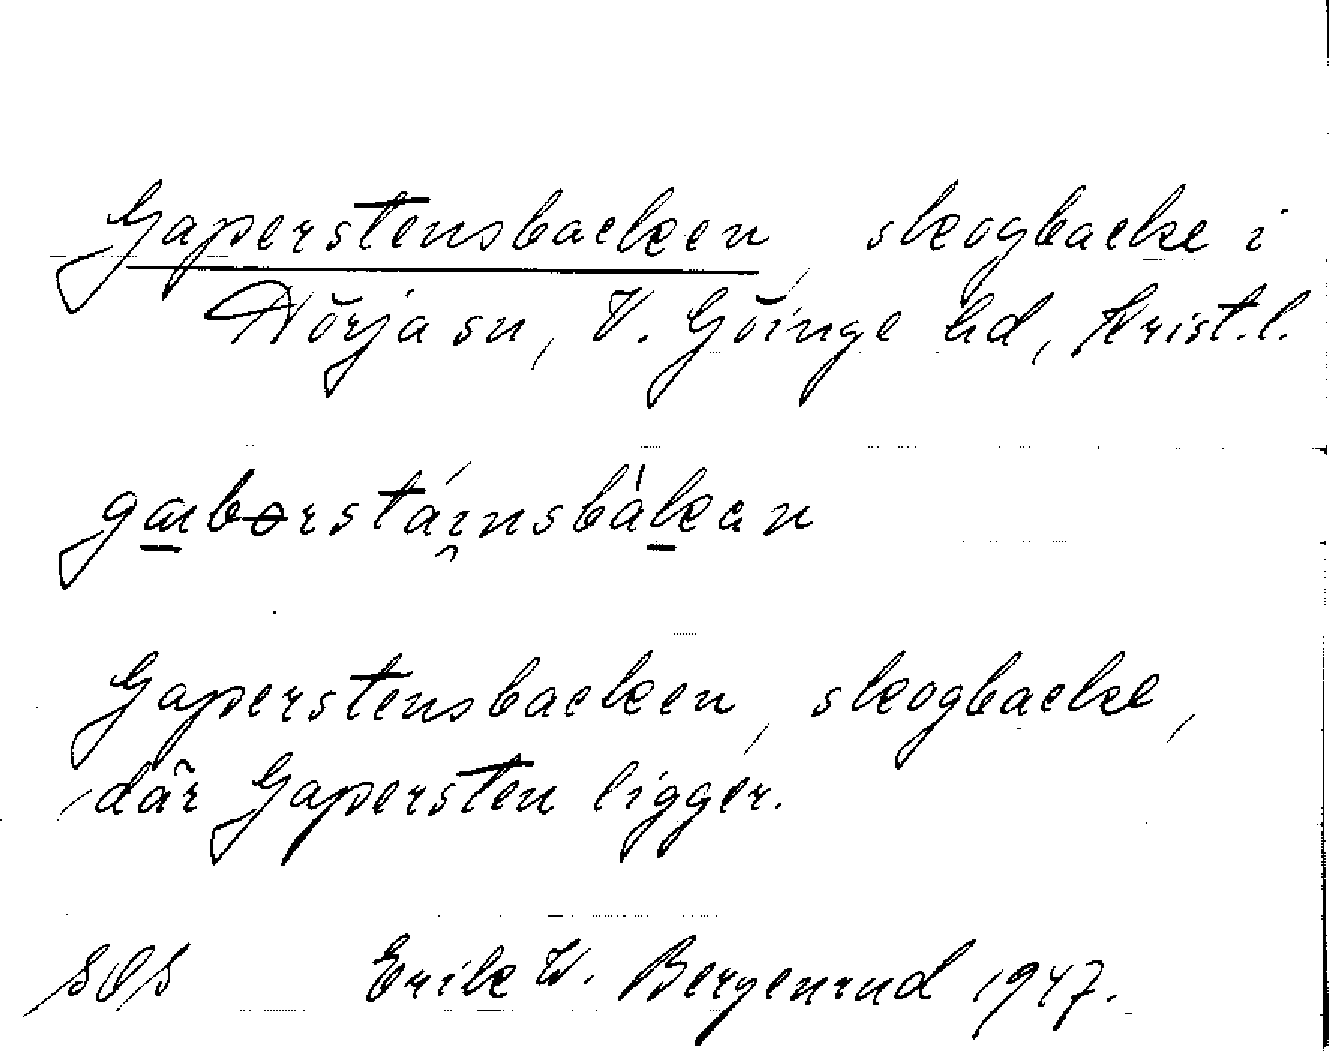 Gaperstensbacken, skogbacke i
Nörja sn, V. Göinge hd, Krist.l.
Gaperstensbacken, skogbacke,
där Gapersten ligger.
SOS Erik W. Bergenrud 1947.